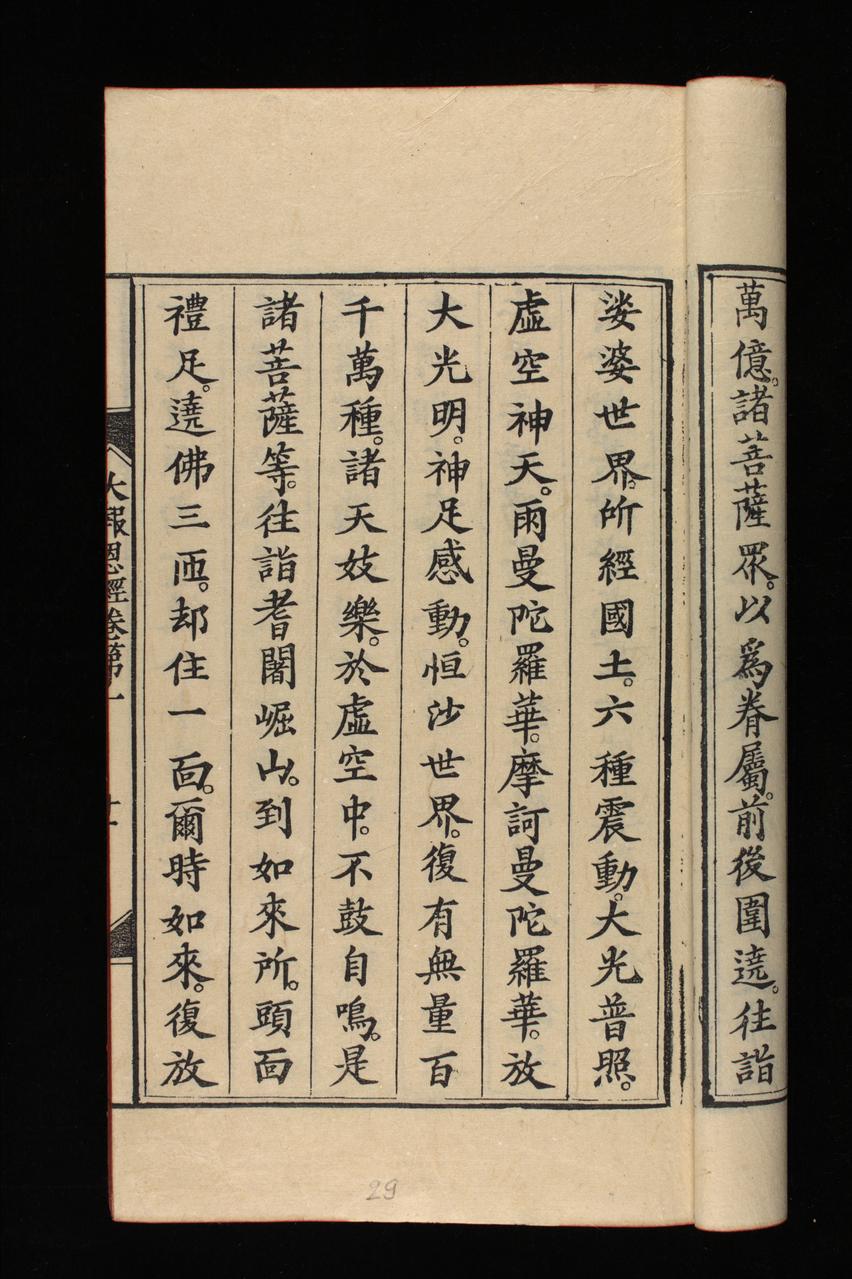 萬億。諸菩薩眾。以為眷屬。前後圍遶。往詣
娑婆世界。所經國土。六種震動。大光普照。
虛空神天。雨曼陀羅華。摩訶曼陀羅華。放
大光明。神足感動。恒沙世界。復有無量百
千萬種。諸天妓樂。於虛空中。不鼓自鳴。是
諸菩薩等。往詣耆闍崛山。到如來所。頭面
禮足。遶佛三匝。却住一面。爾時如來。復放
大報恩經卷第一
29